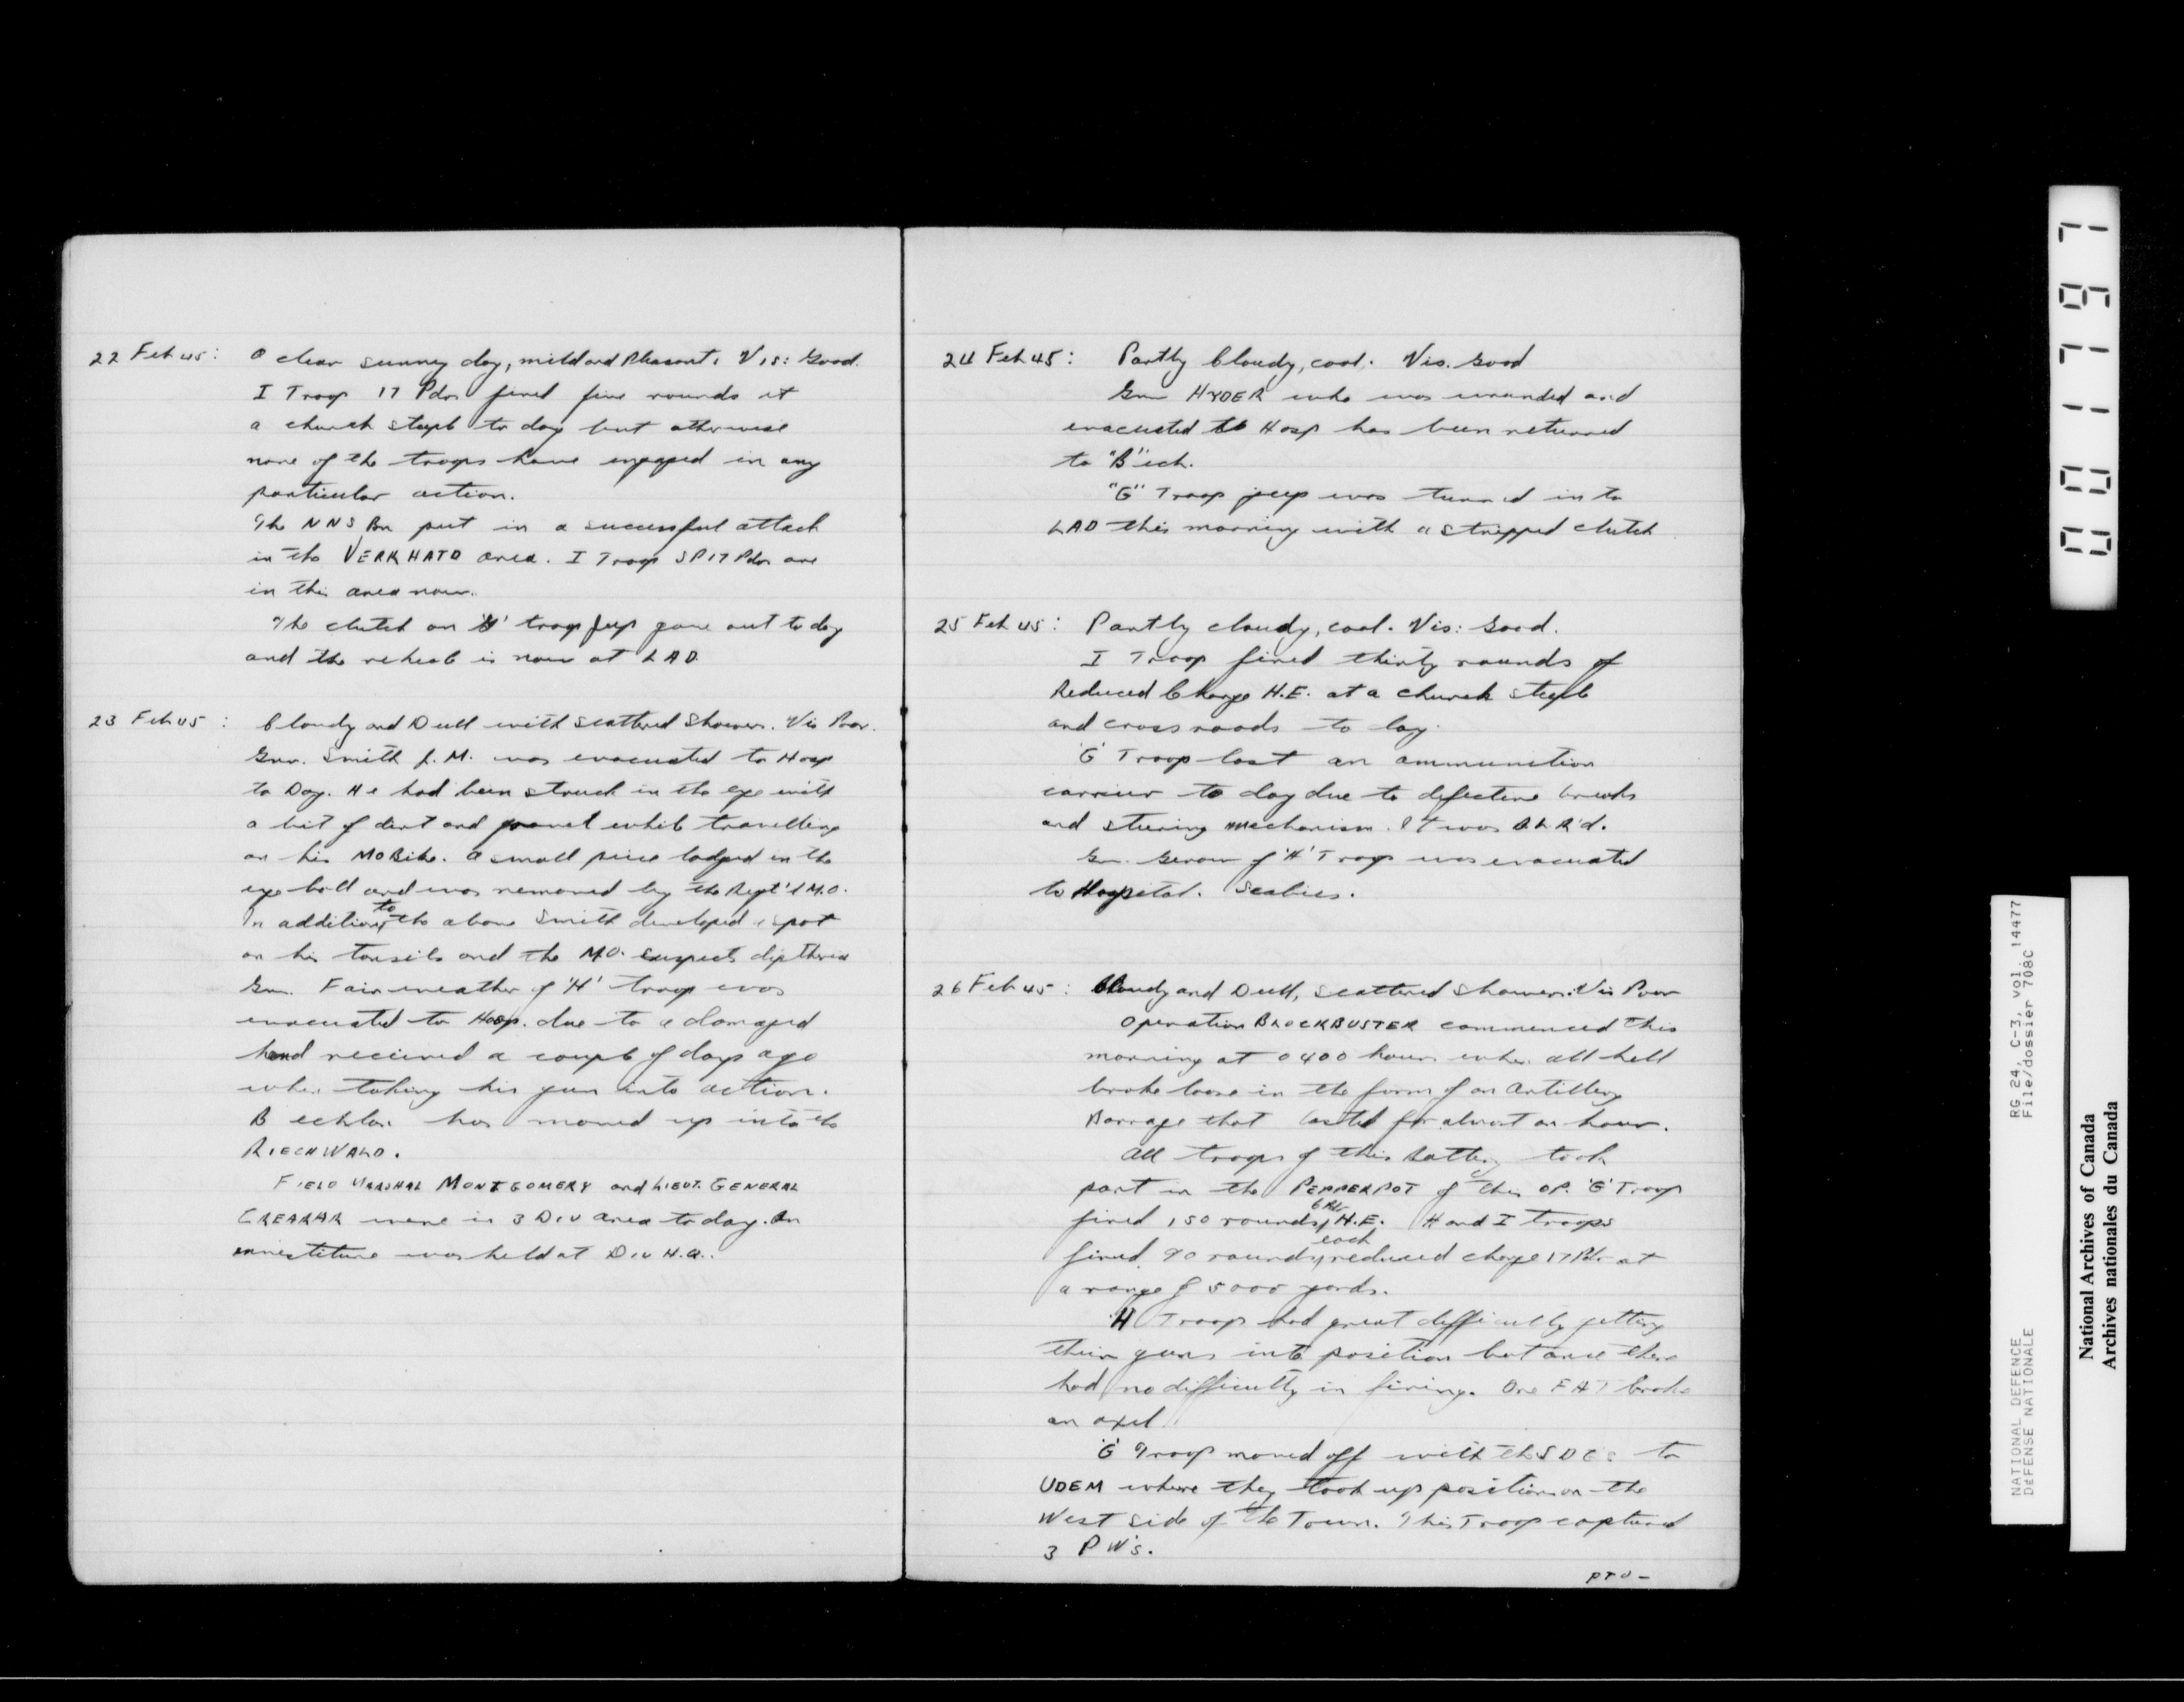 22 Feb 45: A clear sunny day, mild and Pleasant. Vis: Good.
I Troop 17 Pdrs fired five rounds at
a church steeple to day but otherwise
none of the troops have engaged in any
particular action.
The NNS Bn put in a successful attack
in the area. I Troop SP 17 Pdrs are
in this area now.
The clutch on 'H' troop Jeep gave out to day
and the vehicle is now at LAD.
23 Feb 45: Cloudy and Dull with Scattered Showers. Vis Poor.
Gnr. Smith J. M. was evacuated to Hosp
to Day. He had been struck in the eye with
a bit of dirt and gravel while travelling
on his MoBike. A small piece lodged in the
eye ball and was removed by the Regt'l M.O.
In addition to the above Smith developed a spot
on his tonsils and the M.O. suspects diptheria
Gnr. Fairweather of 'H' troop was
evacuated to Hosp. due to a damaged
hand received a couple of days ago
when taking his gun into action.
B echlon has moved up into the
RIECHWALD.
FIELD MARSHAL MONTGOMERY and LIEUT. GENERAL
CREARAR were in 3 DIV area to day. An
investiture was held at DIV H.Q..
24 Feb 45: Partly Cloudy, cool. Vis. Good
Gnr HYDER who was wounded and
evacuated to Hosp has been returned
to "B" ech.
"G" Troop jeep was turned in to
LAD this morning with a stripped clutch
25 Feb 45: Partly cloudy, cool. Vis: Good.
I Troop fired thirty rounds of
Reduced Charge H.E. at a church steeple
and cross roads to day.
'G' Troop lost an ammunition
carrier to day due to defective breaks
and steering mechanism. It was B L R'd.
Gnr. of 'H' Troop was evacuated
to Hospital. Scabies.
26 Feb 45: Cloudy and Dull, scattered showers: Vis Poor
Operation BLOCKBUSTER commenced this
morning at 0400 hours when all hell
broke loose in the form of an Artillery
Barrage that lasted for almost an hour.
All troops of this Battery took
part in the PEPPERPOT of this OP. 'G' Troop
fired 150 rounds 6 Pdr H.E. H and I troops
fired 90 rounds each reduced charge 17 Pdr at
a range of 5000 yards.
'H' Troop had great difficulty getting
their guns into position but once there
had no difficulty in firing. One FAT broke
an axel
'G' Troop moved off with the SDG's to
UDEM where they took up position on the
West side of the Town. This Troop captured
3 PW's.
PTO -
0 0 1 1 7 9 7
RG 24, C-3, vol. 14477
File/dossier 708C
NATIONAL DEFENCE
DÉFENSE NATIONALE
National Archives of Canada
Archives nationales du Canada